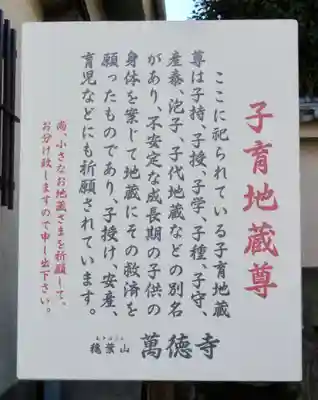 子育地蔵尊
ここに祀られている子育地蔵
尊は子持、子授、子学、子種、子守、
産泰、泡子、子代地蔵などの別名
があり、不安定な成長期の子供の
身体を案じて地蔵にその救済を
願ったものであり、子授け、安産、
育児などにも祈願されています。
尚、小さなお地蔵さまを祈願して、
お分け致しますので申し出下さい。
穐葉山 萬徳寺